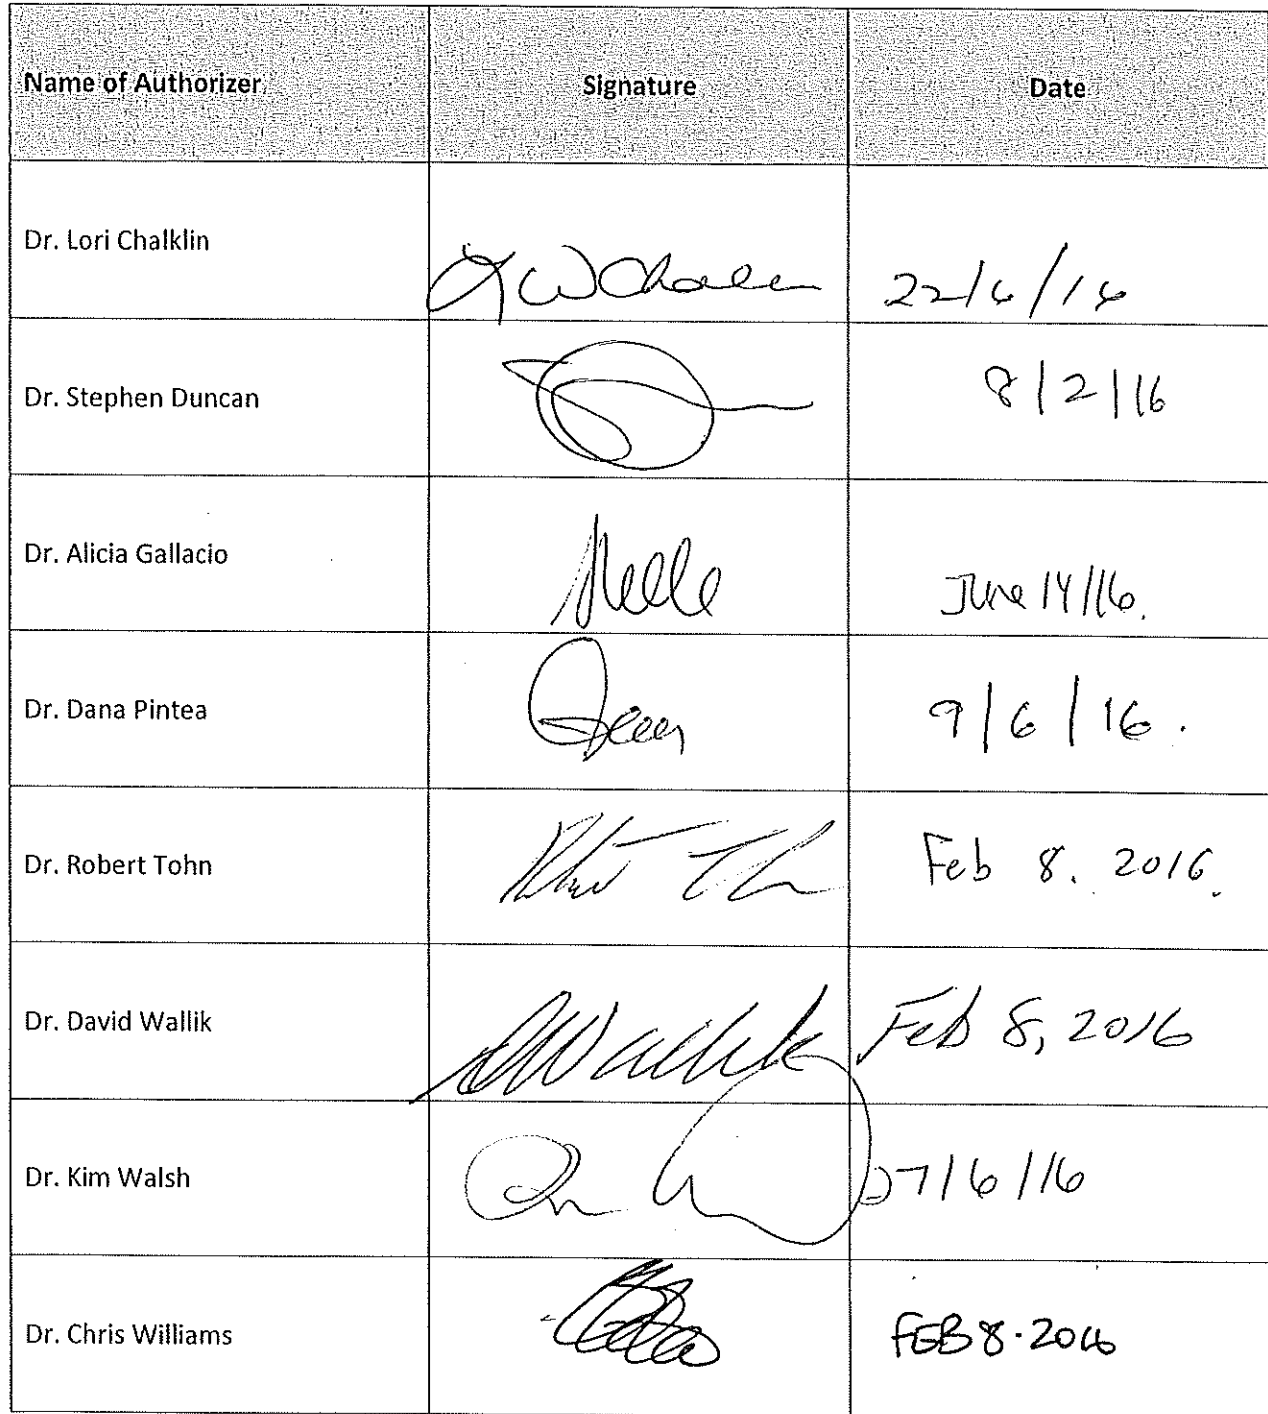 Name of Authorizer Signature Date
Dr. Lori Chalklin 22/6/16
Dr. Stephen Duncan 8/2/16
Dr. Alicia Gallacio June 14/16.
Dr. Dana Pintea 9/6/16.
Dr. Robert Tohn Feb 8. 2016.
Dr. David Wallik DWallik Feb 8, 2016
Dr. Kim Walsh 07/6/16
Dr. Chris Williams FEB 8. 2016